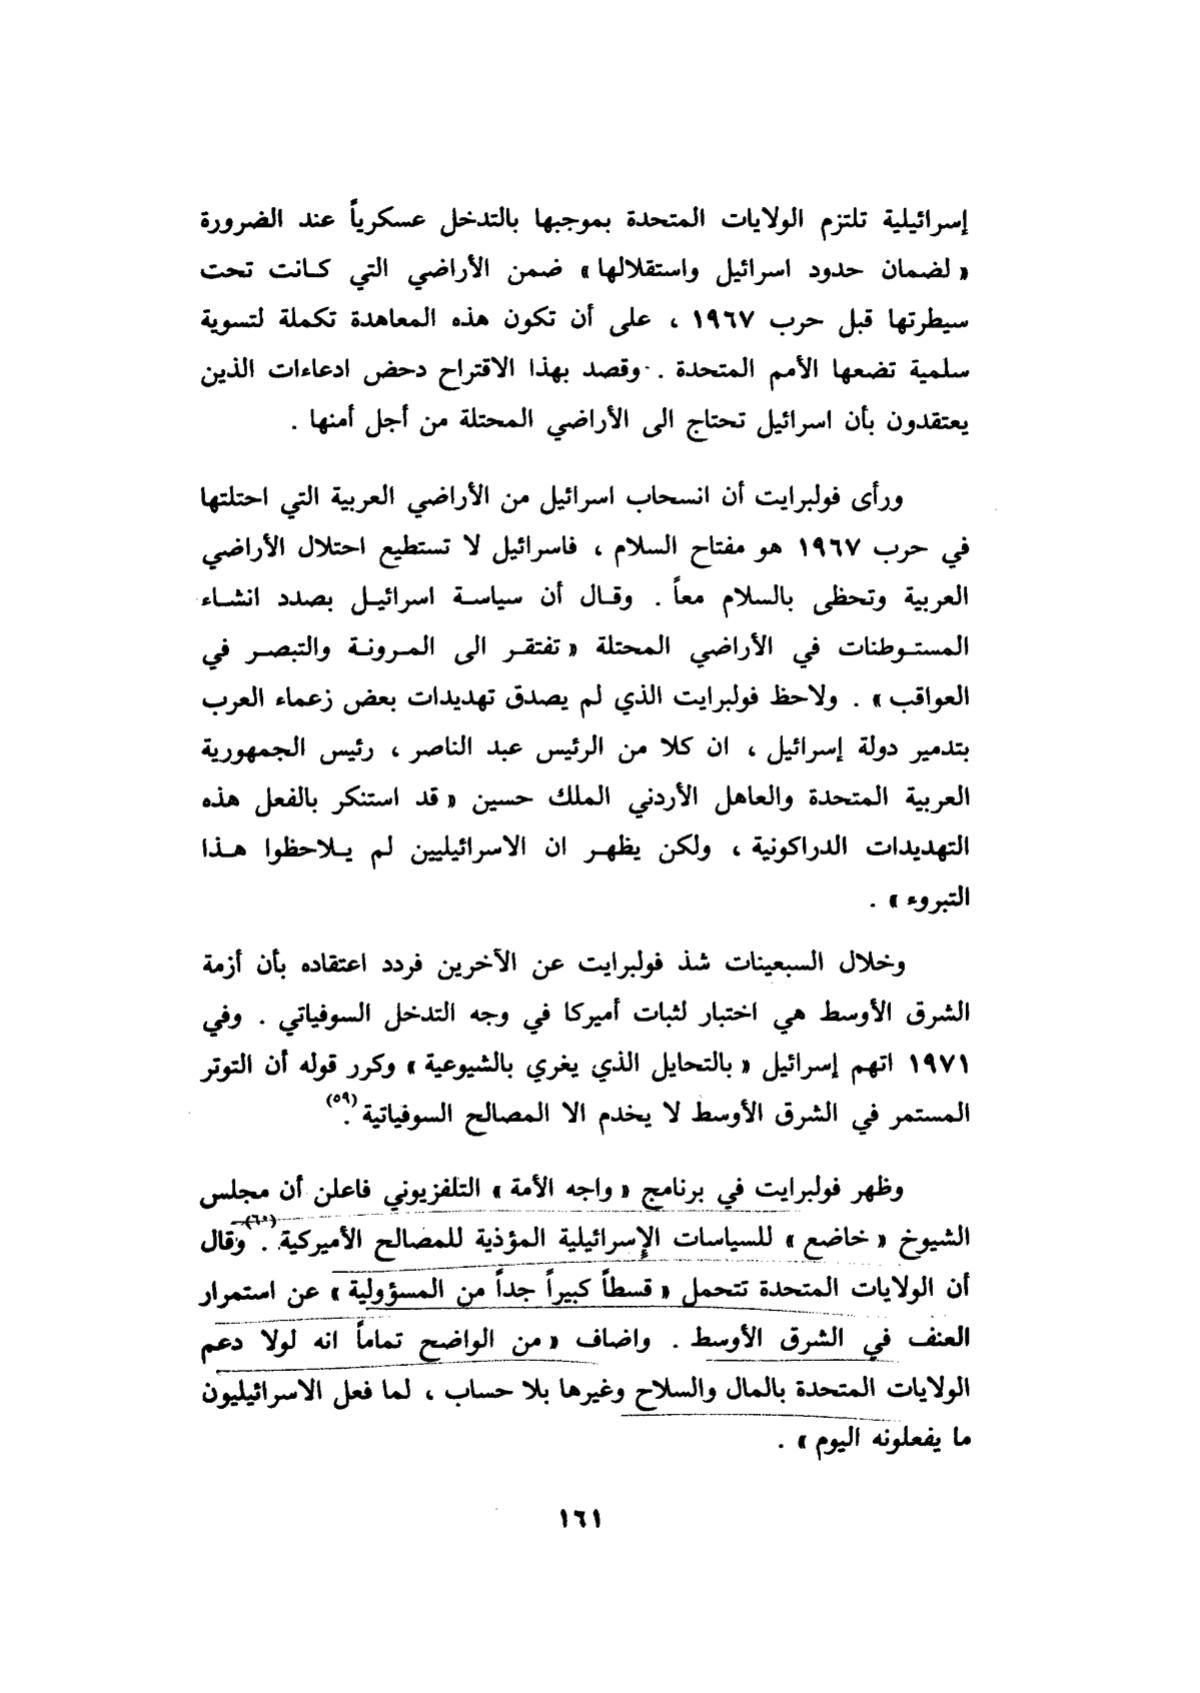 إسرائيلية تلتزم الولايات المتحدة بموجبها بالتدخل عسكرياً عند الضرورة
« لضمان حدود اسرائيل واستقلالها » ضمن الأراضي التي كانت تحت
سيطرتها قبل حرب ١٩٦٧ ، على أن تكون هذه المعاهدة تكملة لتسوية
سلمية تضعها الأمم المتحدة . وقصد بهذا الاقتراح دحض ادعاءات الذين
يعتقدون بأن اسرائيل تحتاج الى الأراضي المحتلة من أجل أمنها .
ورأى فولبرايت أن انسحاب اسرائيل من الأراضي العربية التي احتلتها
في حرب ١٩٦٧ هو مفتاح السلام ، فاسرائيل لا تستطيع احتلال الأراضي
العربية وتحظى بالسلام معاً . وقال أن سياسة اسرائيل بصدد انشاء
المستوطنات في الأراضي المحتلة « تفتقر الى المرونة والتبصر في
العواقب » . ولاحظ فولبرايت الذي لم يصدق تهديدات بعض زعماء العرب
بتدمير دولة إسرائيل ، ان كلا من الرئيس عبد الناصر ، رئيس الجمهورية
العربية المتحدة والعاهل الأردني الملك حسين « قد استنكر بالفعل هذه
التهديدات الدراكونية ، ولكن يظهر ان الاسرائيليين لم يلاحظوا هذا
التبروء » .
وخلال السبعينات شذ فولبرايت عن الآخرين فردد اعتقاده بأن أزمة
الشرق الأوسط هي اختبار لثبات أميركا في وجه التدخل السوفياتي . وفي
١٩٧١ اتهم إسرائيل « بالتحايل الذي يغري بالشيوعية » وكرر قوله أن التوتر
المستمر في الشرق الأوسط لا يخدم الا المصالح السوفياتية (٥٩).
وظهر فولبرايت في برنامج « واجه الأمة » التلفزيوني فاعلن أن مجلس
الشيوخ « خاضع » للسياسات الإسرائيلية المؤذية للمصالح الأميركية (٦٠). وقال
أن الولايات المتحدة تتحمل « قسطاً كبيراً جداً من المسؤولية » عن استمرار
العنف في الشرق الأوسط . واضاف « من الواضح تماماً انه لولا دعم
الولايات المتحدة بالمال والسلاح وغيرها بلا حساب ، لما فعل الاسرائيليون
ما يفعلونه اليوم » .
١٦١